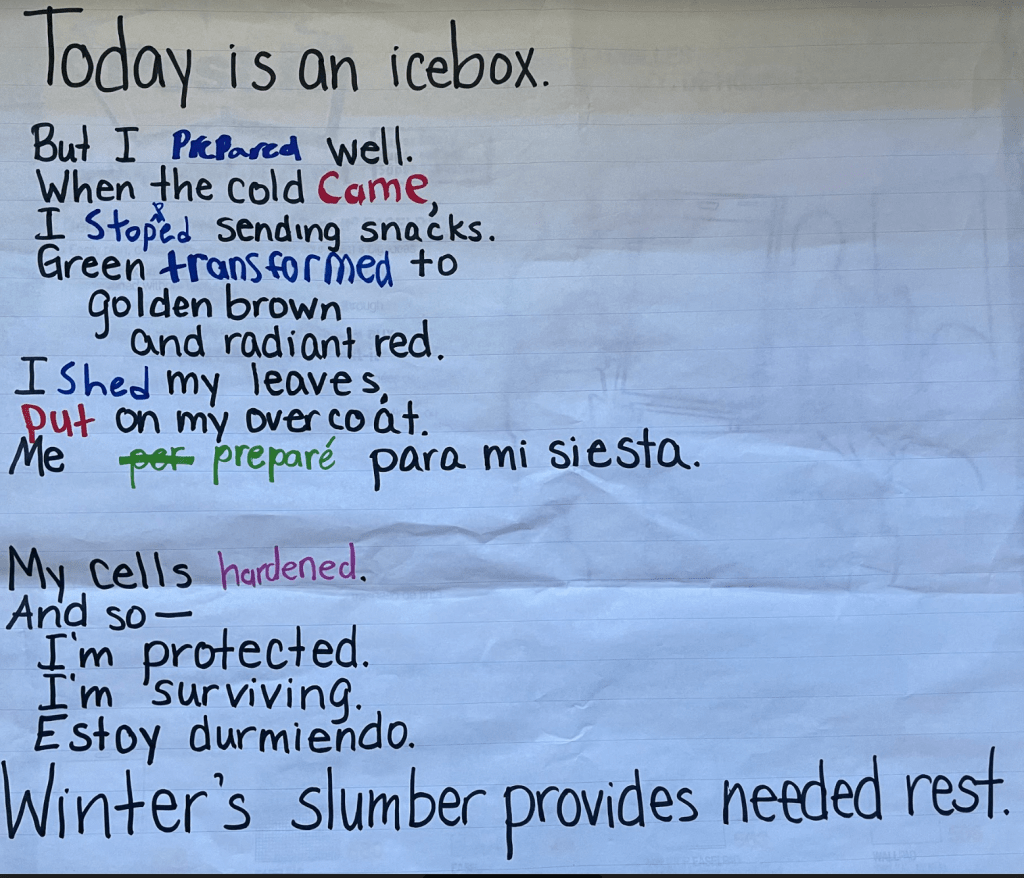 Today is an icebox.
But I Prepared well.
When the cold Came,
I Stopped sending snacks.
Green transformed to
golden brown
and radiant red.
I Shed my leaves,
put on my overcoat.
Me per preparé para mi siesta.
My cells hardened.
And so—
I'm protected.
I'm surviving.
Estoy durmiendo.
Winter's slumber provides needed rest.